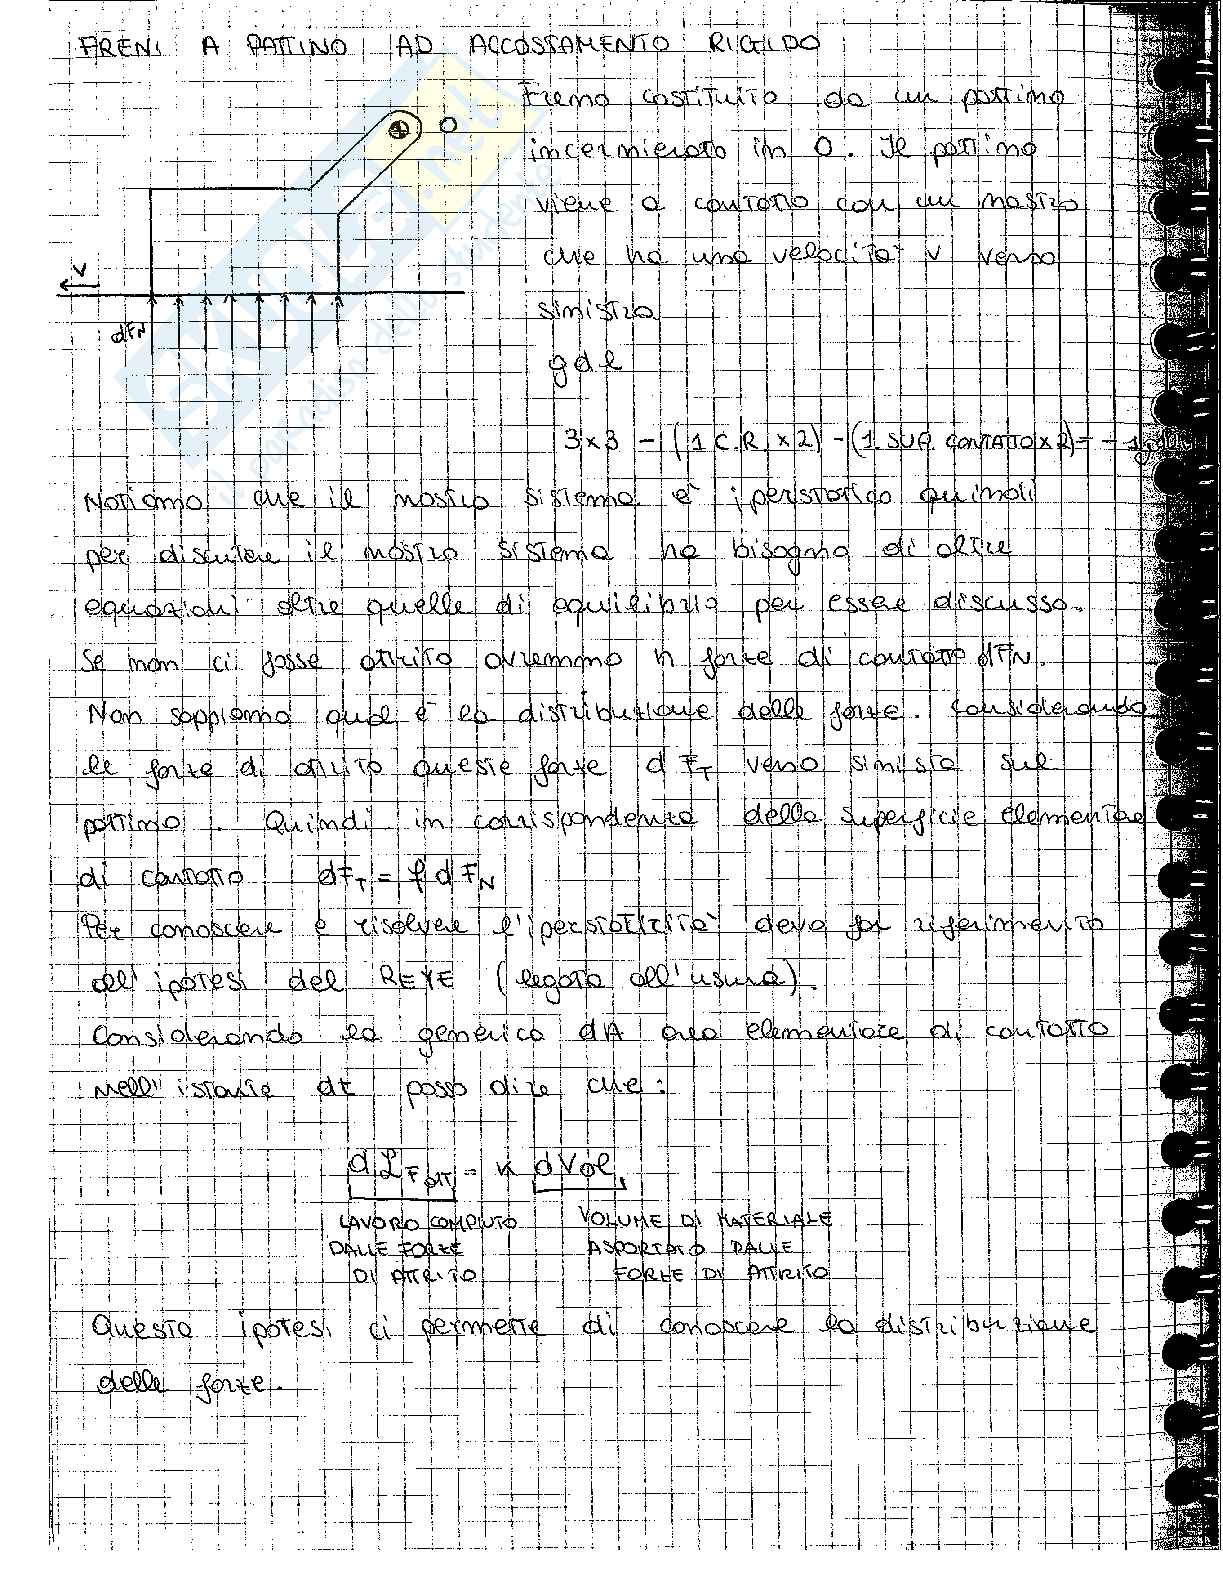 FRENI A PATTINO AD ACCOSTAMENTO RIGIDO
Freno costituito da un pattino
incernierato in O. Il pattino
viene a contatto con un nastro
che ha una velocità v verso
sinistra
gdl
O
V
dFN
3x3 - (1 C.R. x2) - (1 SUP. CONTATTO x 2) = - 1
Notiamo che il nostro sistema è iperstatico quindi
per discutere il nostro sistema ha bisogno di altre
equazioni oltre quelle di equilibrio per essere discusso.
Se non ci fosse attrito avremmo n forze di contatto dFN.
Non sappiamo qual è la distribuzione delle forze. Considerando
le forze di attrito queste forze dFT verso sinista sul
pattino. Quindi in corrispondenza della superficie elementare
di contatto dFT = f dFN
Per conoscere e risolvere l'iperstaticità devo far riferimento
all'ipotesi del REYE (legata all'usura).
Considerando la generica dA area elementare di contatto
nell'istante dt posso dire che:
dLF ATT = K dVol.
LAVORO COMPIUTO VOLUME DI MATERIALE
DALLE FORZE ASPORTATO DALLE
DI ATTRITO FORZE DI ATTRITO
Questa ipotesi ci permette di conoscere la distribuzione
delle forze.